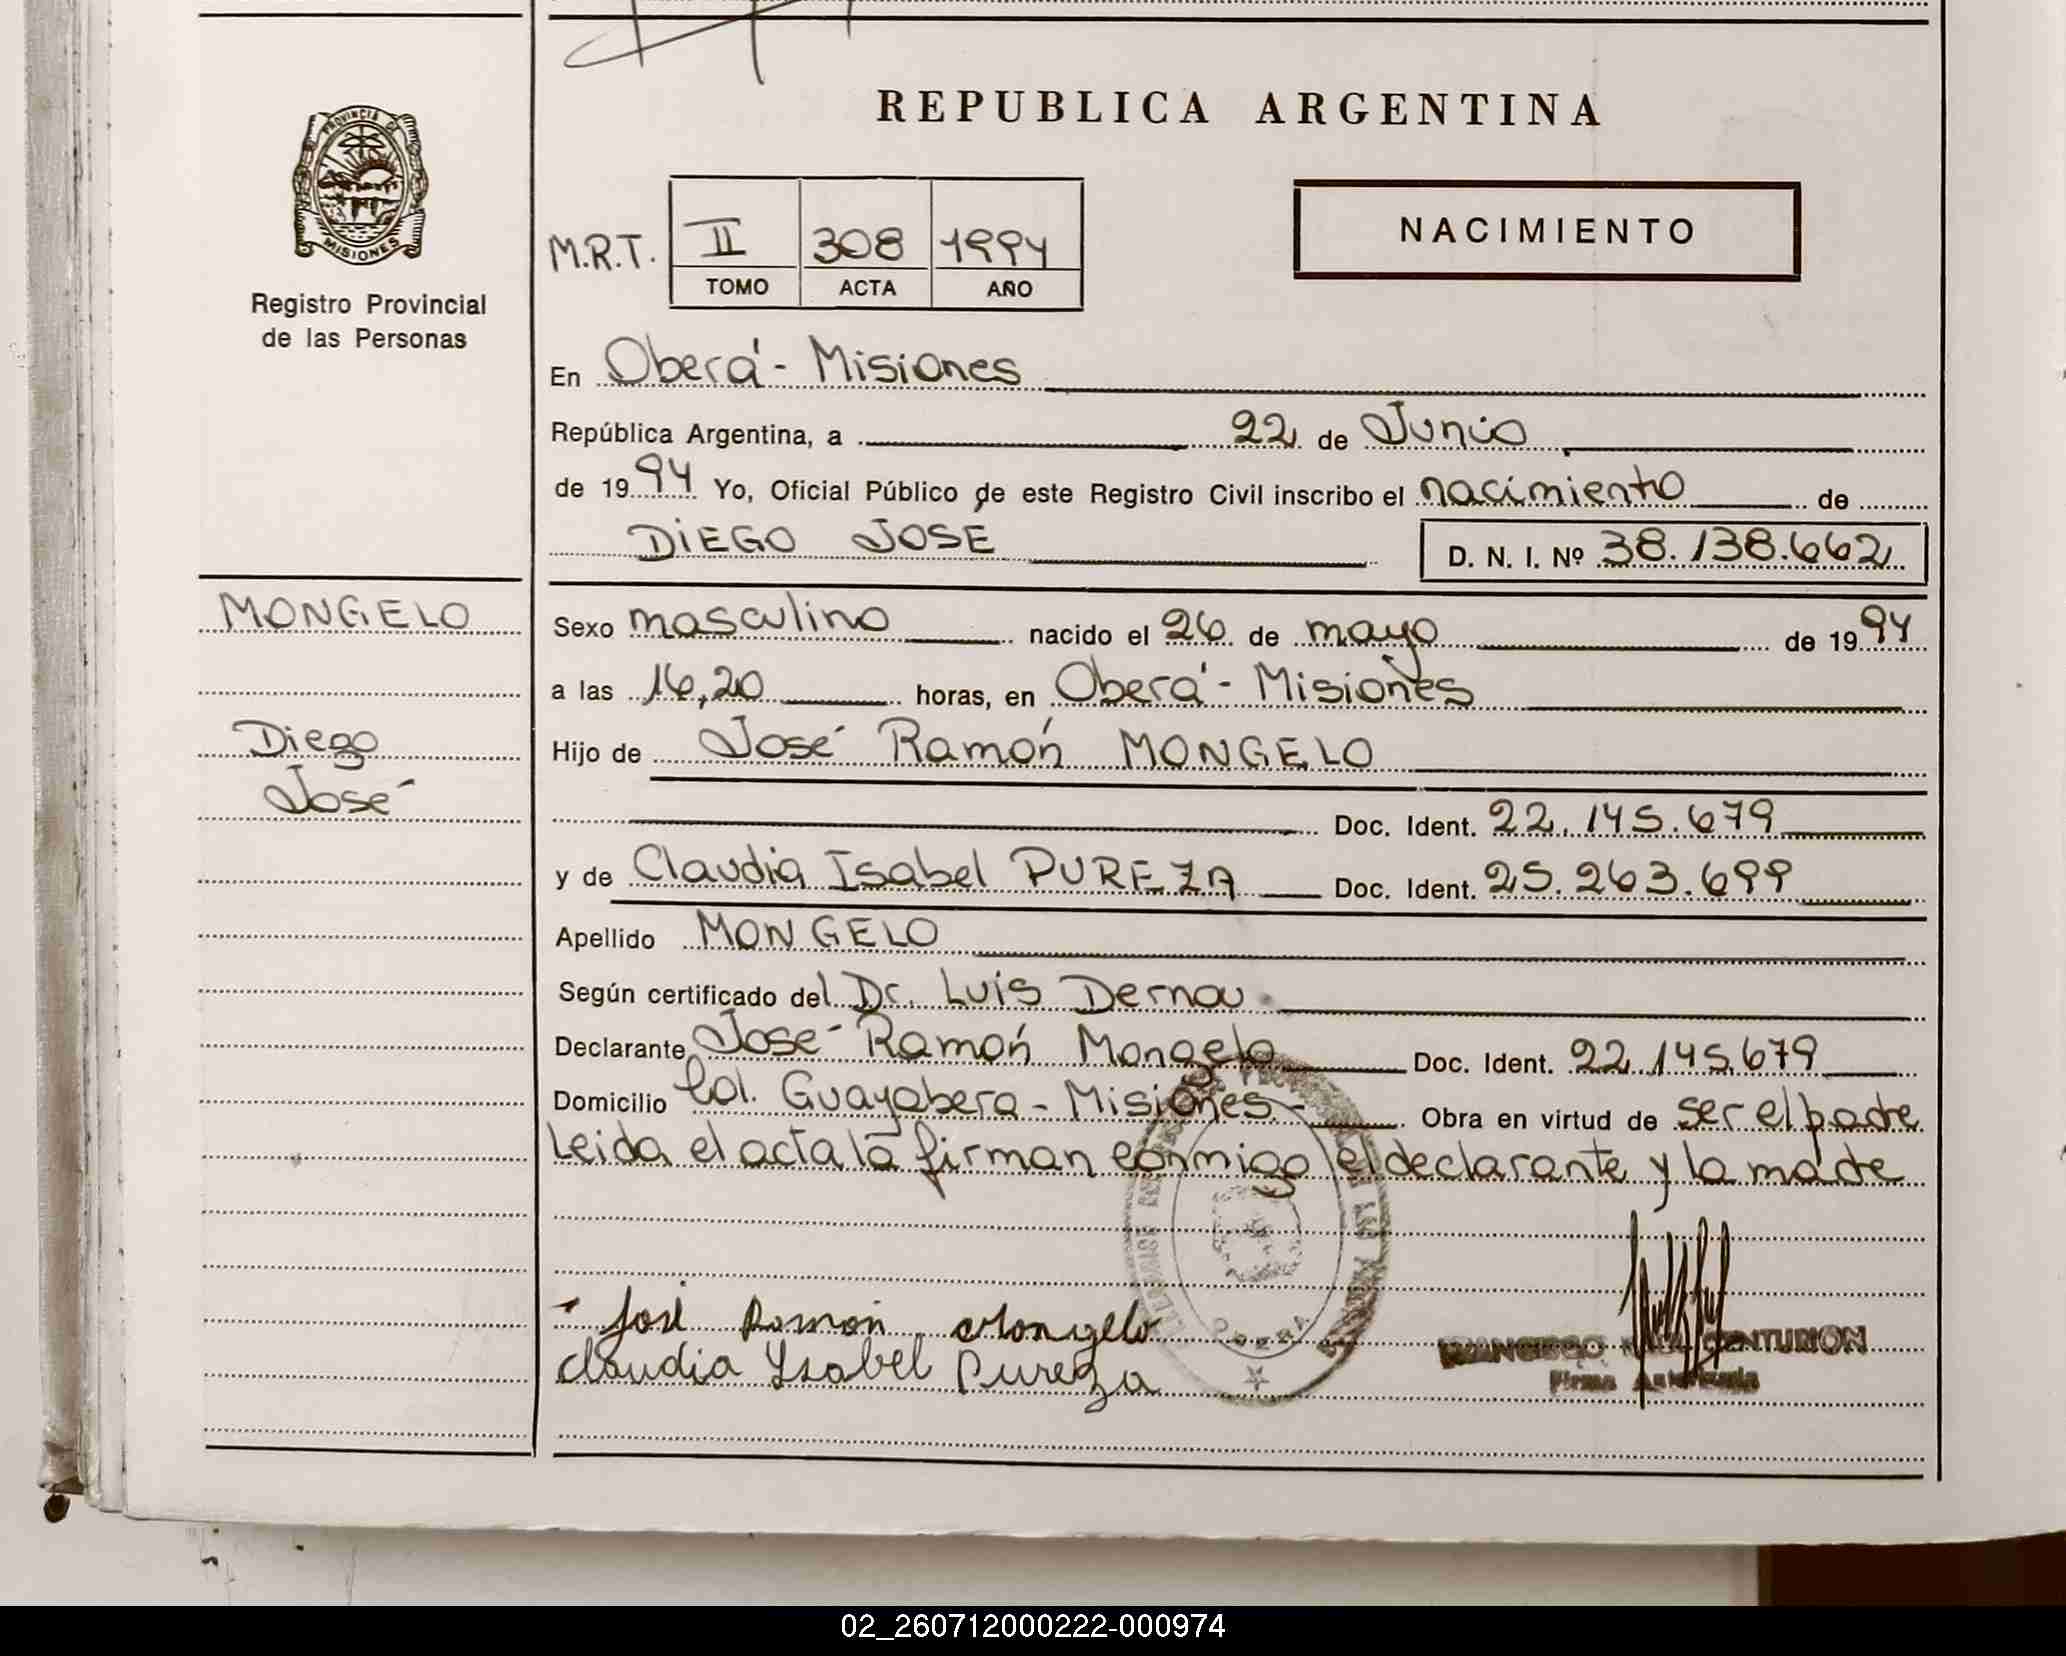 REPUBLICA ARGENTINA
PROVINCIA DE
MISIONES
Registro Provincial
de las Personas
M.R.T. II 308 1994
TOMO ACTA AÑO
NACIMIENTO
En Oberá - Misiones
República Argentina, a 22 de Junio
de 1994 Yo, Oficial Público de este Registro Civil inscribo el nacimiento de
DIEGO JOSE D. N. I. Nº 38.138.662
MONGELO
Diego
José
Sexo masculino nacido el 26 de mayo de 1994
a las 16,20 horas, en Oberá - Misiones
Hijo de José Ramón MONGELO
Doc. Ident. 22.145.679
y de Claudia Isabel PUREZA Doc. Ident. 25.263.699
Apellido MONGELO
Según certificado del Dr. Luis Dernou
Declarante José Ramón Mongelo Doc. Ident. 22.145.679
Domicilio Col. Guayabera - Misiones - Obra en virtud de ser el padre
Leida el acta la firman conmigo el declarante y la madre
José Ramón Mongelo
Claudia Ysabel Pureza
FRANCISCO CENTURION
Firma Autorizada
02_260712000222-000974